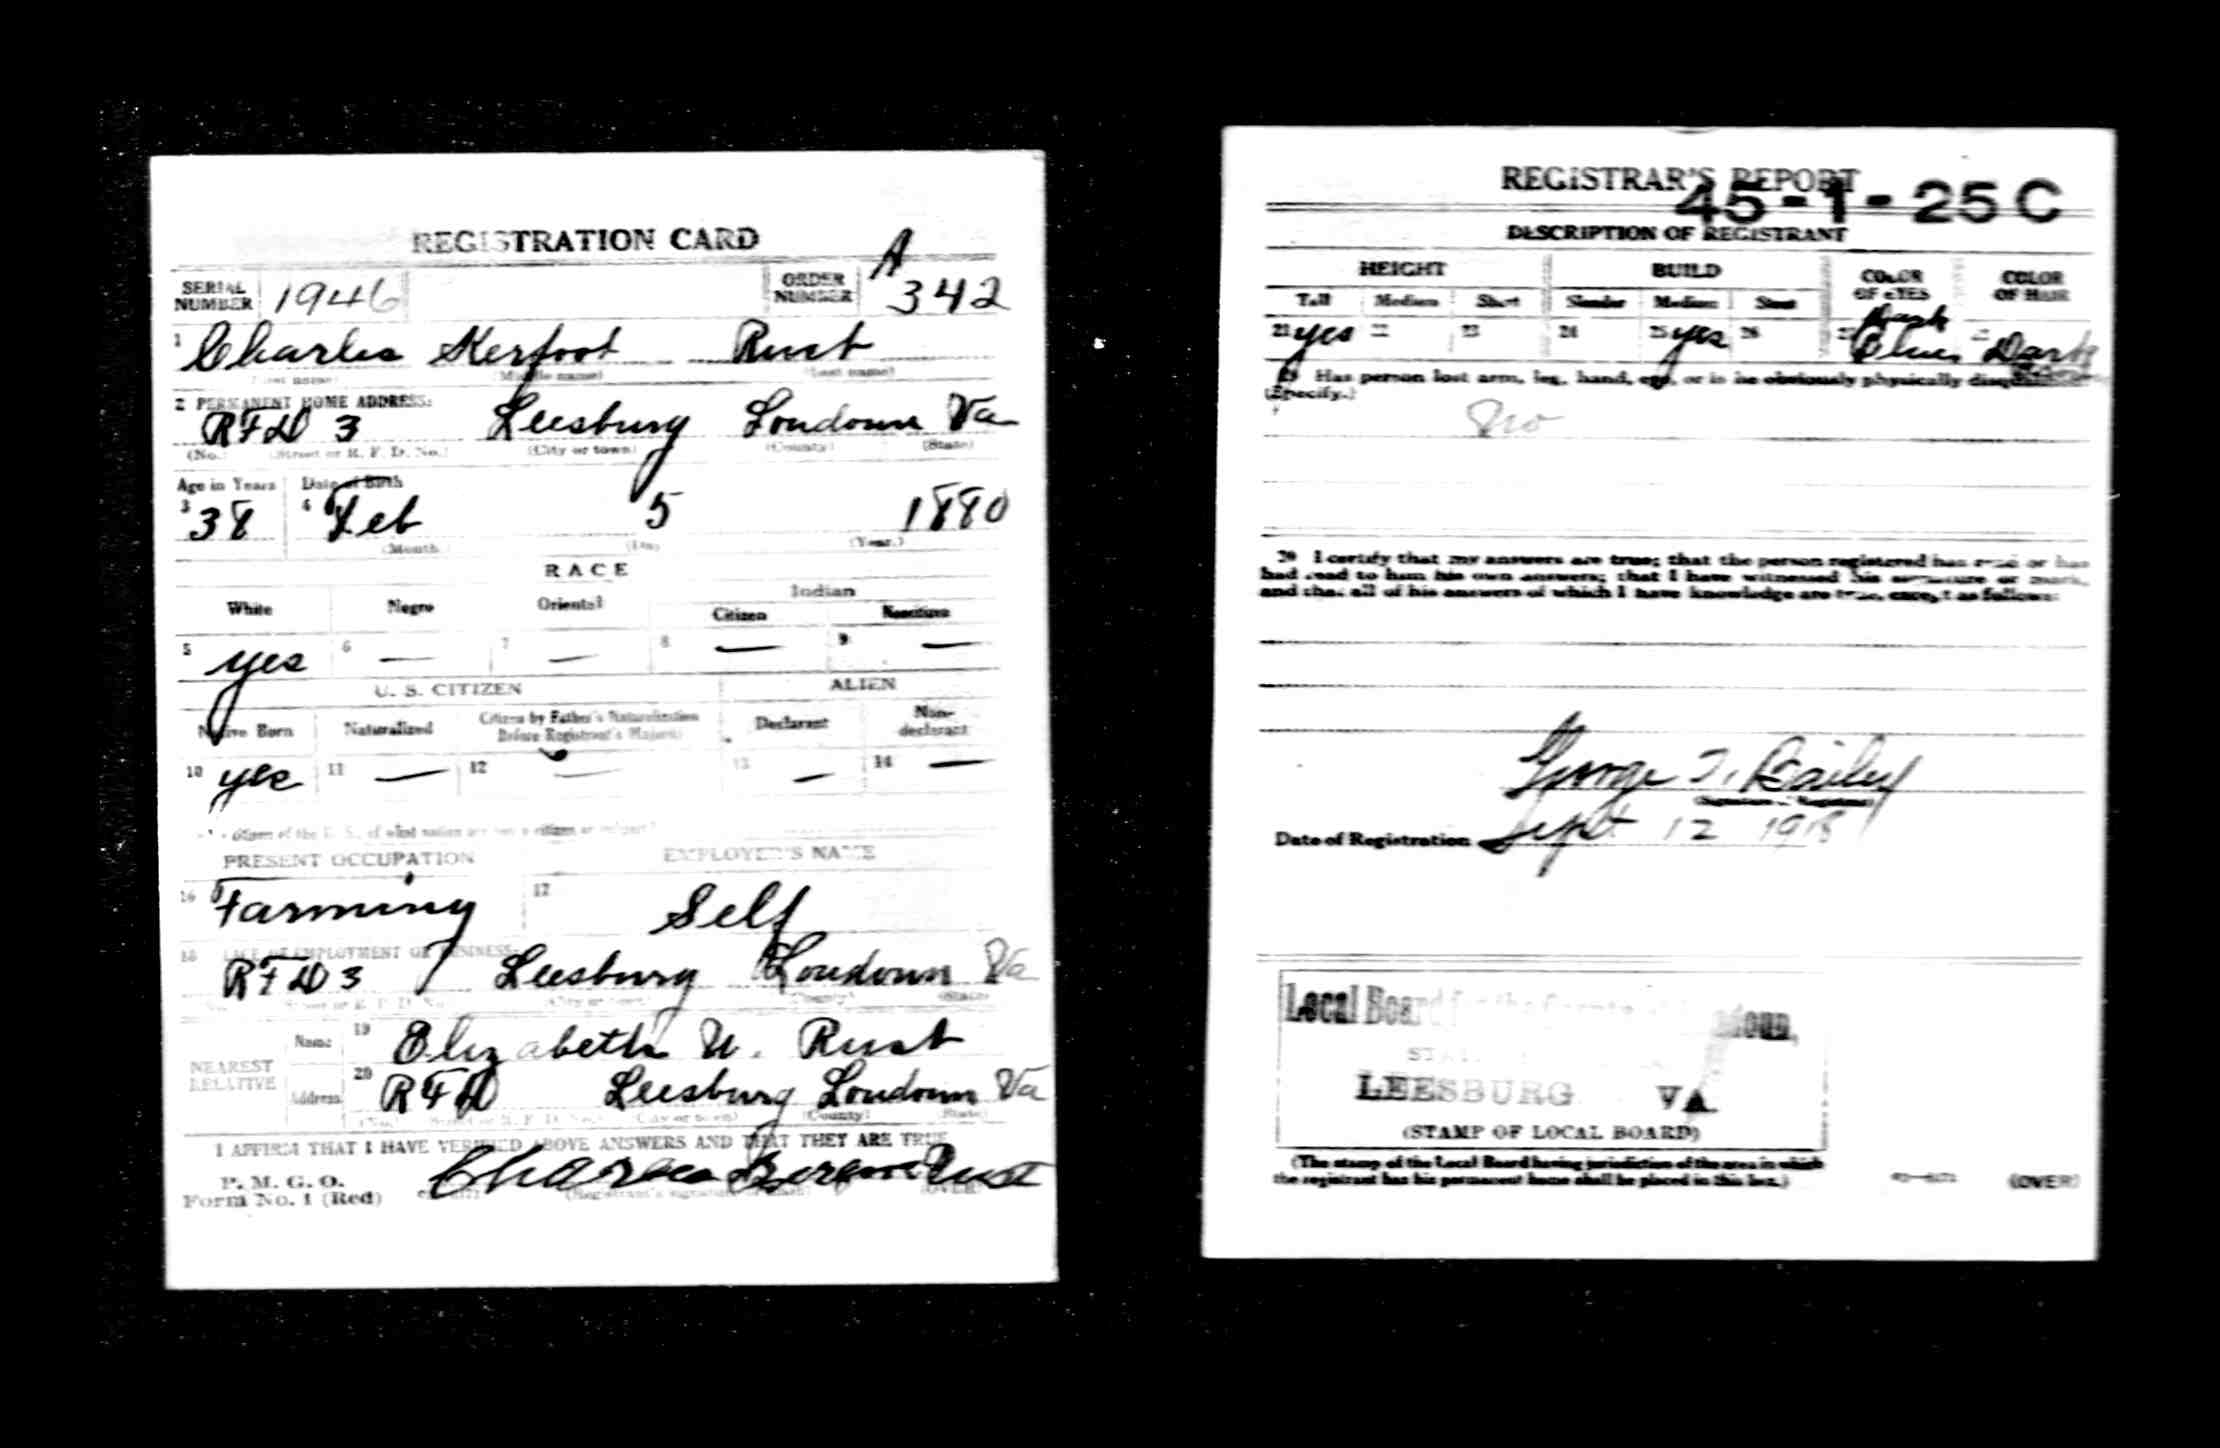 REGISTRATION CARD
SERIAL NUMBER 1946 ORDER NUMBER A 342
1 Charles Kerfoot Rust
(First name) (Middle name) (Last name)
2 PERMANENT HOME ADDRESS:
RFD 3 Leesburg Loudoun Va
(No.) (Street or R. F. D. No.) (City or town) (County) (State)
Age in Years Date of Birth
3 38 4 Feb 5 1880
(Month) (Day) (Year.)
RACE
White Negro Oriental Indian
Citizen Noncitizen
5 yes 6 — 7 — 8 — 9 —
U. S. CITIZEN ALIEN
Native Born Naturalized Citizen by Father's Naturalization Before Registrant's Majority Declarant Non-declarant
10 yes 11 — 12 — 13 — 14 —
citizen of the U. S., of what nation are you a citizen or subject?
PRESENT OCCUPATION EMPLOYER'S NAME
16 Farming 17 Self
18 PLACE OF EMPLOYMENT OR BUSINESS:
RFD 3 Leesburg Loudoun Va
(Street or R. F. D. No.) (City or town) (County) (State)
NEAREST RELATIVE
Name 19 Elizabeth W. Rust
Address 20 RFD Leesburg Loudoun Va
(No.) (Street or R. F. D. No.) (City or town) (County) (State)
I AFFIRM THAT I HAVE VERIFIED ABOVE ANSWERS AND THAT THEY ARE TRUE
P. M. G. O.
Form No. 1 (Red) Charles Rust
(Registrant's signature or mark) (OVER)
REGISTRAR'S REPORT
45-1-25 C
DESCRIPTION OF REGISTRANT
HEIGHT BUILD COLOR OF EYES COLOR OF HAIR
Tall Medium Short Slender Medium Stout
21 yes 22 23 24 25 yes 26 27 Dark Blue Dark
29 Has person lost arm, leg, hand, eye, or is he obviously physically disqualified?
(Specify.)
No
30 I certify that my answers are true; that the person registered has read or has
had read to him his own answers; that I have witnessed his signature or mark,
and that all of his answers of which I have knowledge are true, except as follows:
George T. Bailey
(Signature of Registrar)
Date of Registration Sept 12 1918
Local Board for the County of Loudoun,
LEESBURG VA.
(STAMP OF LOCAL BOARD)
(The stamp of the Local Board having jurisdiction of the area in which
the registrant has his permanent home shall be placed in this box.)
(OVER)